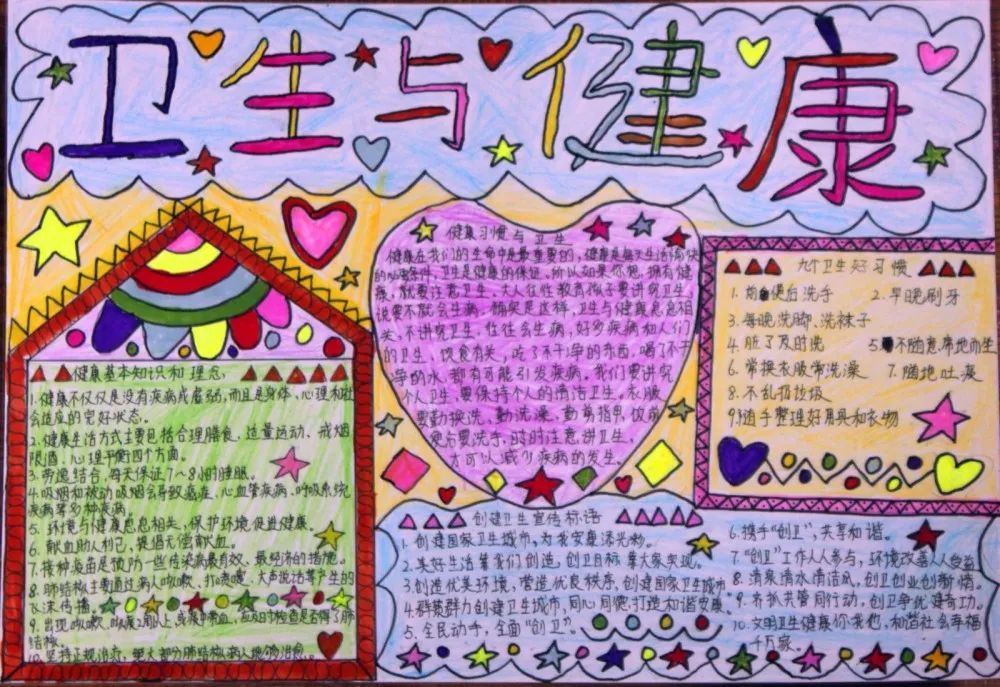 卫生与健康
健康基本知识和理念
1.健康不仅仅是没有疾病或虚弱,而且是身体、心理和社
会适应的完好状态。
2.健康生活方式主要包括合理膳食、适量运动、戒烟
限酒、心理平衡四个方面。
3.劳逸结合,每天保证7~8小时睡眠。
4.吸烟和被动吸烟会导致癌症、心血管疾病、呼吸系统
疾病等多种疾病。
5.环境与健康息息相关,保护环境促进健康。
6.献血助人利己,提倡无偿献血。
7.接种疫苗是预防一些传染病最有效、最经济的措施。
8.肺结核主要通过病人咳嗽、打喷嚏、大声说话等产生的
飞沫传播。
9.出现咳嗽、咳痰2周以上,或痰中带血,应及时检查是否得了肺
结核。
10.坚持正规治疗,绝大部分肺结核病人能够治愈。
健康习惯与卫生
健康在我们的生命中是最重要的,健康是每天生活愉快
的必要条件,卫生是健康的保证,所以如果你想拥有健
康,就要注意卫生,大人往往教育孩子要讲究卫生,
说要不就会生病,确实是这样,卫生与健康息息相
关,不讲究卫生,往往会生病,好多疾病和人们
的卫生、饮食有关,吃了不干净的东西,喝了不干
净的水,都有可能引发疾病,我们要讲究
个人卫生,要保持个人的清洁卫生。衣服
要勤换洗,勤洗澡,勤剪指甲,饭前
便后要洗手,时时注意讲卫生,
才可以减少疾病的发生。
九个卫生好习惯
1.前便后洗手 2.早晚刷牙
3.每晚洗脚、洗袜子
4.脏了及时洗 5.不随意席地而坐
6.常换衣服常洗澡 7.随地吐痰
8.不乱扔垃圾
9.随手整理好用具和衣物
创建卫生宣传标语
1.创建国家卫生城市,为我家园添光彩。
2.美好生活靠我们创造,创卫目标靠大家实现。
3.创造优美环境,营造优良秩序,创建国家卫生城市
4.群策群力创建卫生城市,同心同德,打造和谐安康
5.全民动手,全面“创卫”。
6.携手“创卫”,共享和谐。
7.“创卫”工作人人参与,环境改善人人受益
8.清泉清水清洁城,创卫创业创新情。
9.齐抓共管同行动,创卫争优建奇功。
10.文明卫生健康你我他,和谐社会幸福
千万家。